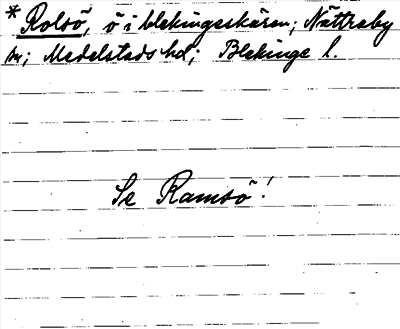 * Rolsö, ö i blekingsskären; Nättraby
sn; Medelstads hd; Blekinge l.
Se Ramsö!